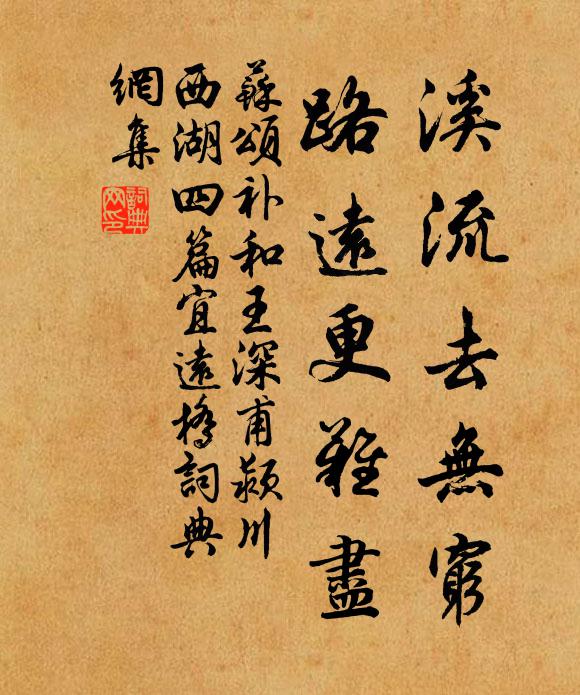 溪流去無窮
路遠更難盡
蘇頌补和王深甫颍川
西湖四篇宜遠橋詞典
網集
詞典网印